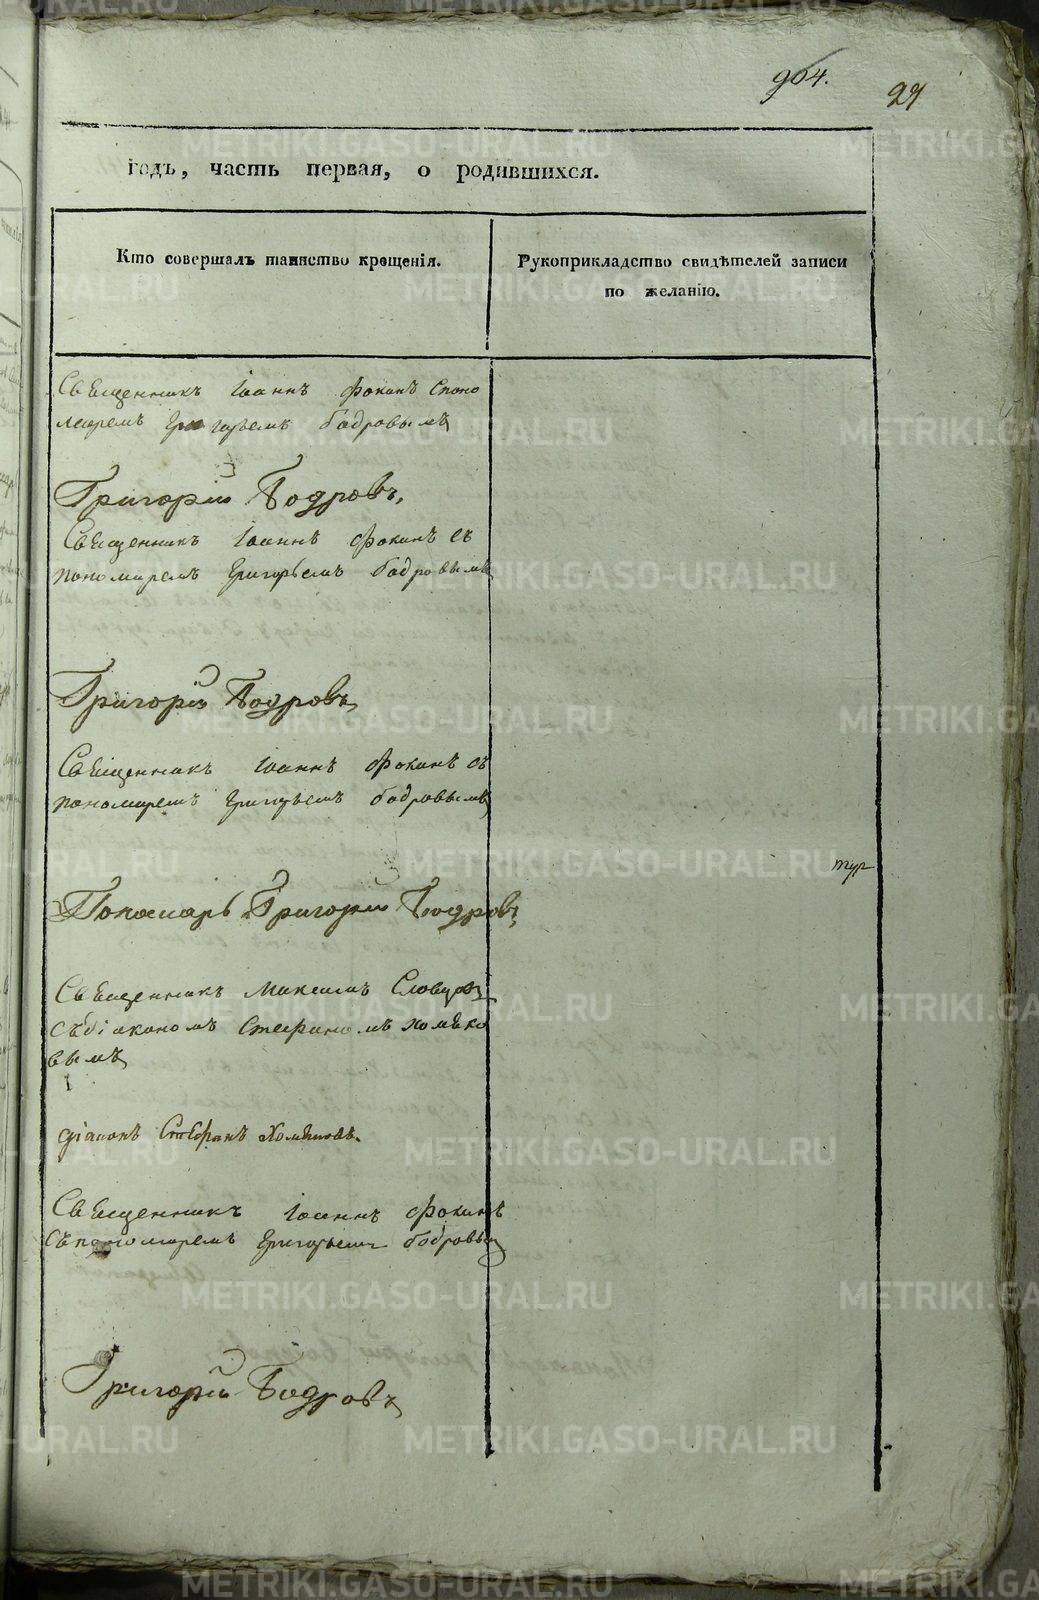 904.
29
годъ, часть первая, о родившихся.
Кто совершалъ таинство крещенія.
Рукоприкладство свидѣтелей записи
по желанію.
Священникъ Іоаннъ Фокинъ с поно
маремъ Григорьемъ Бодровымъ
Григорій Бодровъ,
Священникъ Іоаннъ Фокинъ съ
пономаремъ Григорьемъ Бодровымъ
Григорій Бодровъ
Священникъ Іоаннъ Фокинъ съ
пономаремъ Григорьемъ Бодровымъ
Пономарь Григорій Бодровъ
Священникъ Максимъ Словцовъ
съ діакономъ Стефаномъ Хомяко
вымъ
діаконъ Стефанъ Хомяковъ.
Священникъ Іоаннъ Фокинъ
съ пономаремъ Григорьемъ Бодровы
Григорій Бодровъ
METRIKI.GASO-URAL.RU